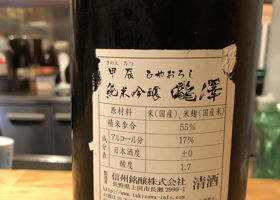 きのえ・たつ
甲辰 ひやおろし
純米吟醸 瀧澤
原材料 米(国産)、米麹(国産米)
精米歩合 55%
成分表
アルコール分 17%
日本酒度 ±0
酸度 1.7
製造者 信州銘醸株式会社 清酒
長野県上田市長瀬2999-1
http://www.takizawa-info.com